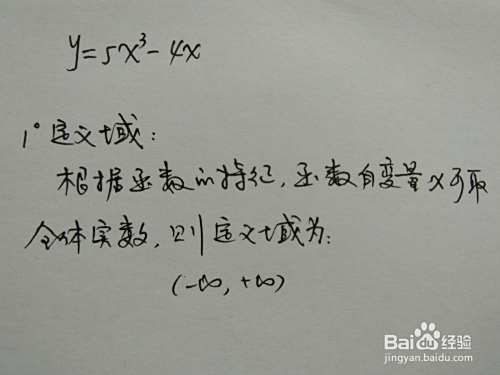 y=5x³-4x
1°定义域：
根据函数的特征，函数自变量x可取
全体实数，则定义域为：
(-∞, +∞)
Baidu 经验
jingyan.baidu.com